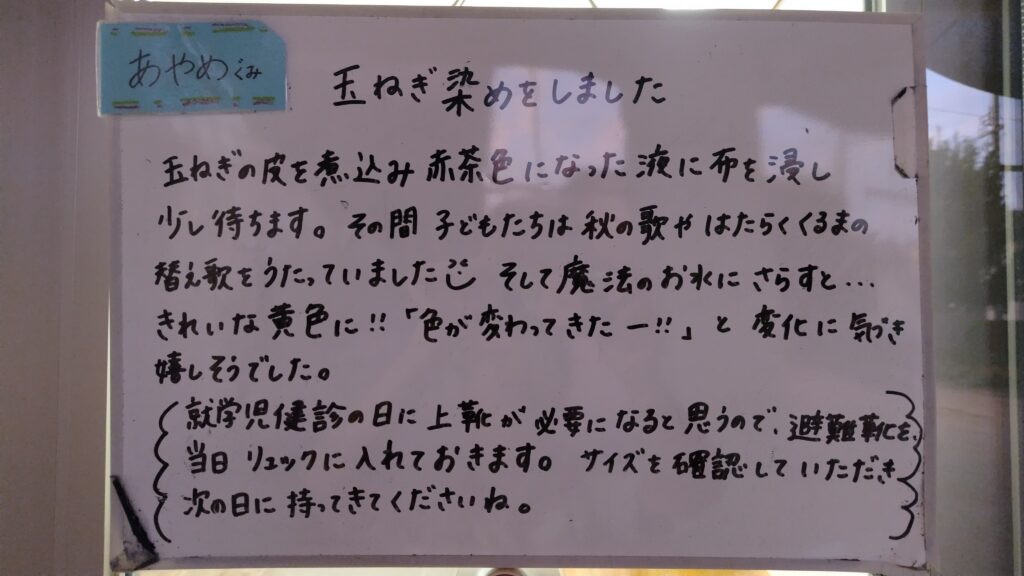 あやめぐみ
玉ねぎ染めをしました
玉ねぎの皮を煮込み 赤茶色になった液に布を浸し
少し待ちます。その間 子どもたちは 秋の歌や はたらくくるまの
替え歌をうたっていました そして魔法のお水に さらすと…
きれいな黄色に!!「色が変わってきたー!!」と 変化に気づき
嬉しそうでした。
就学児健診の日に上靴が必要になると思うので、避難靴を、
当日 リュックに入れておきます。サイズを確認していただき
次の日に持ってきてくださいね。